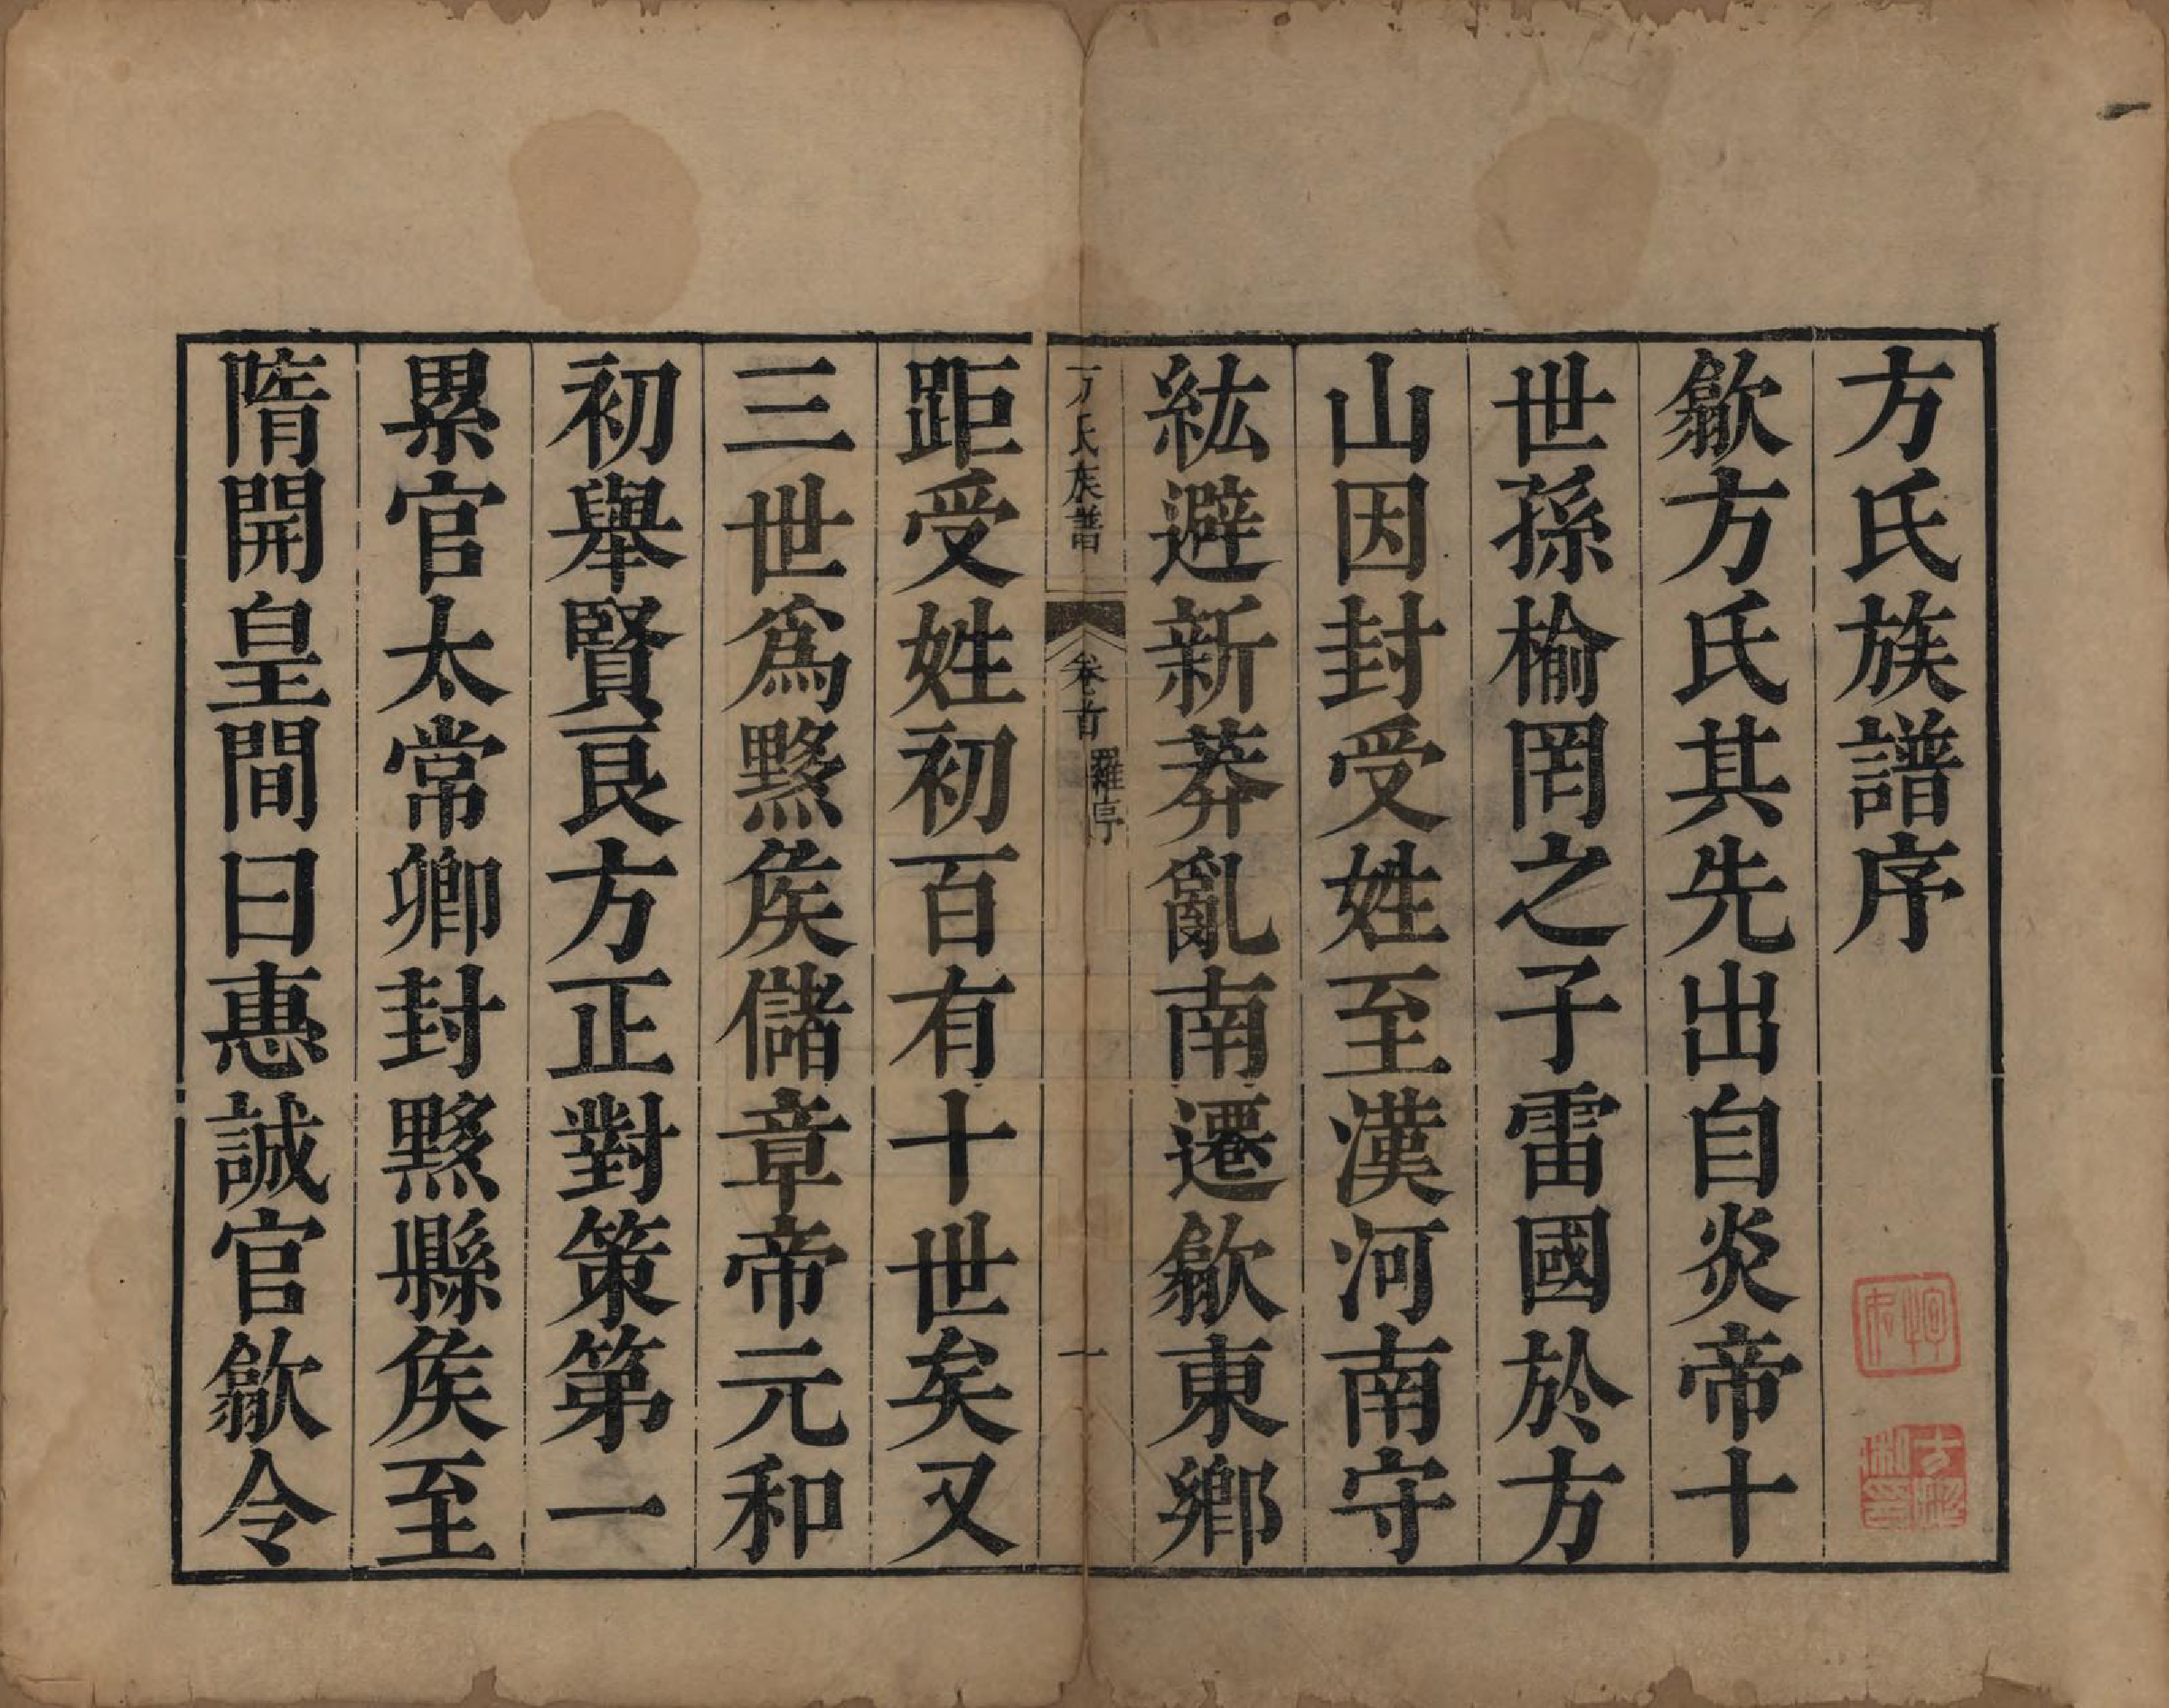 方氏族譜序
歙方氏其先出自炎帝十
世孫榆罔之子雷國於方
山因封受姓至漢河南守
紘避新莽亂南遷歙東鄉
方氏族譜 卷首 羅序 一
距受姓初百有十世矣又
三世爲黟矦儲章帝元和
初舉賢良方正對策第一
累官太常卿封黟縣矦至
隋開皇間曰惠誠官歙令